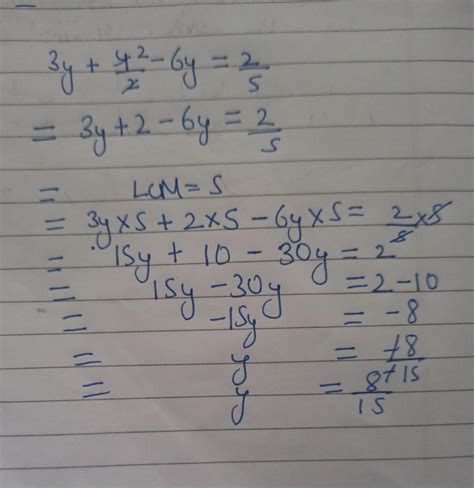 3y + 4²/2 - 6y = 2/5
= 3y + 2 - 6y = 2/5
= LCM = 5
= 3y × 5 + 2 × 5 - 6y × 5 = 2/5 × 5
= 15y + 10 - 30y = 2
= 15y - 30y = 2 - 10
= -15y = -8
= y = +8/+15
= y = 8/15